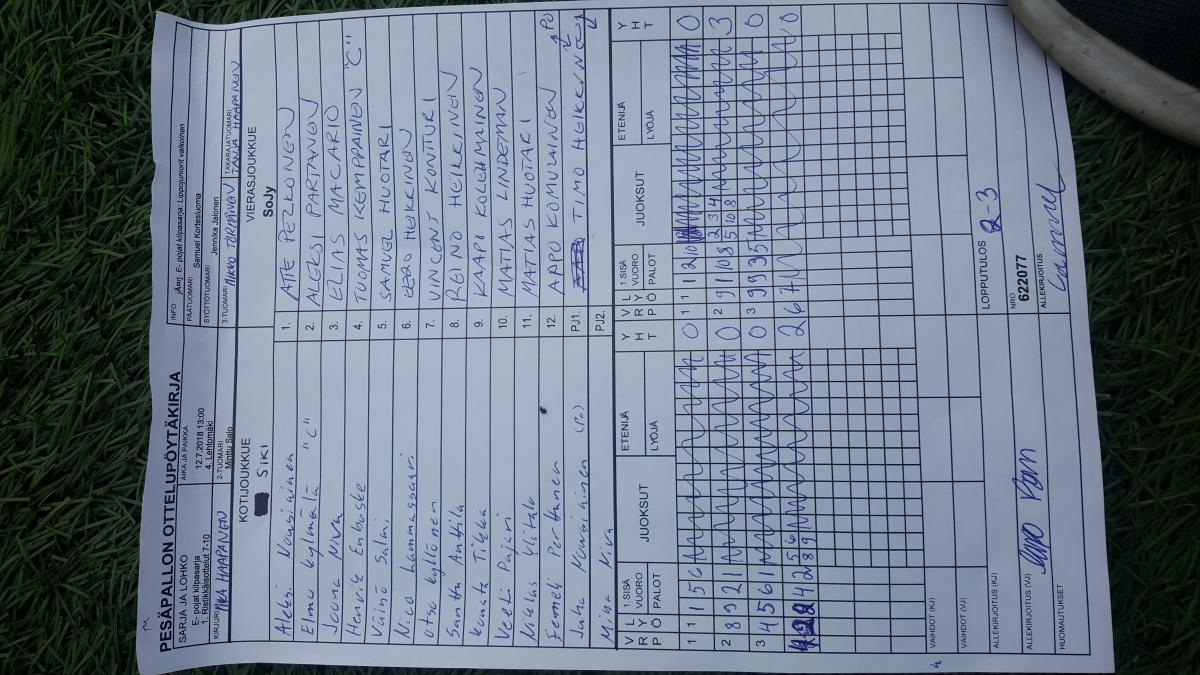 PESÄPALLON OTTELUPÖYTÄKIRJA
SARJA JA LOHKO
E- pojat kilpasarja
1. Ristikkäisottelut 7-10
AIKA JA PAIKKA
12.7.2018 13:00
4. Lehtomäki
INFO
jÄarj. E- pojat kilpasarja: Lippojuniorit valkoinen
PÄÄTUOMARI
Samuel Kortesluoma
SYÖTTÖTUOMARI
Jennika Jalonen
KIRJURI
MIKA HAAPANEN
2-TUOMARI
Minttu Salo
3-TUOMARI
MIKKO TÖRMÄNEN
TAKARAJATUOMARI
TANJA HAAPANEN
KOTIJOUKKUE
SiKi
VIERASJOUKKUE
SoJy
Aleksi Nousiainen 1. ATTE PEZKONEN
Elmo Kylmälä "C" 2. ALEKSI PARTANEN
Joona Niva 3. ELIAS MACARIO
Henrik Enbuske 4. TUOMAS KEMPPAINEN "C"
Väinö Salmi 5. SAMUEL HUOTARI
Nico Lammassaari 6. EERO HEIKKINEN
Otso Kyllönen 7. VINCENT KONTTURI
Santtu Anttila 8. REINO HEIKKINEN
Konsta Tikka 9. KAAPI KOLEHMAINEN
Veeti Pajari 10. MATIAS LINDEMAN
Niklas Ylitalo 11. MATIAS HUOTARI
Eemeli Perttunen 12. AAPO KOMULAINEN
Juha Nousiainen (PJ) PJ1. TIMO HEIKKINEN
Miina Niva PJ2.
V R L Y Ö P 1.SISÄ VUORO PALOT JUOKSUT ETENIJÄ LYÖJÄ Y H T
V R L Y Ö P 1.SISÄ VUORO PALOT JUOKSUT ETENIJÄ LYÖJÄ Y H T
1 1 1 5 6 0 1 1 1 2 10 0
2 8 9 2 1 0 2 9 1 10 8 2 3 4 5 10 8 3
3 4 5 6 1 0 3 9 9 3 5 0
4 2 5 6 8 9 1 2 6 7 0
VAIHDOT (KJ)
VAIHDOT (VJ)
LOPPUTULOS 2 3
ALLEKIRJOITUS (KJ)
NRO
622077
ALLEKIRJOITUS (VJ)
ALLEKIRJOITUS
HUOMAUTUKSET